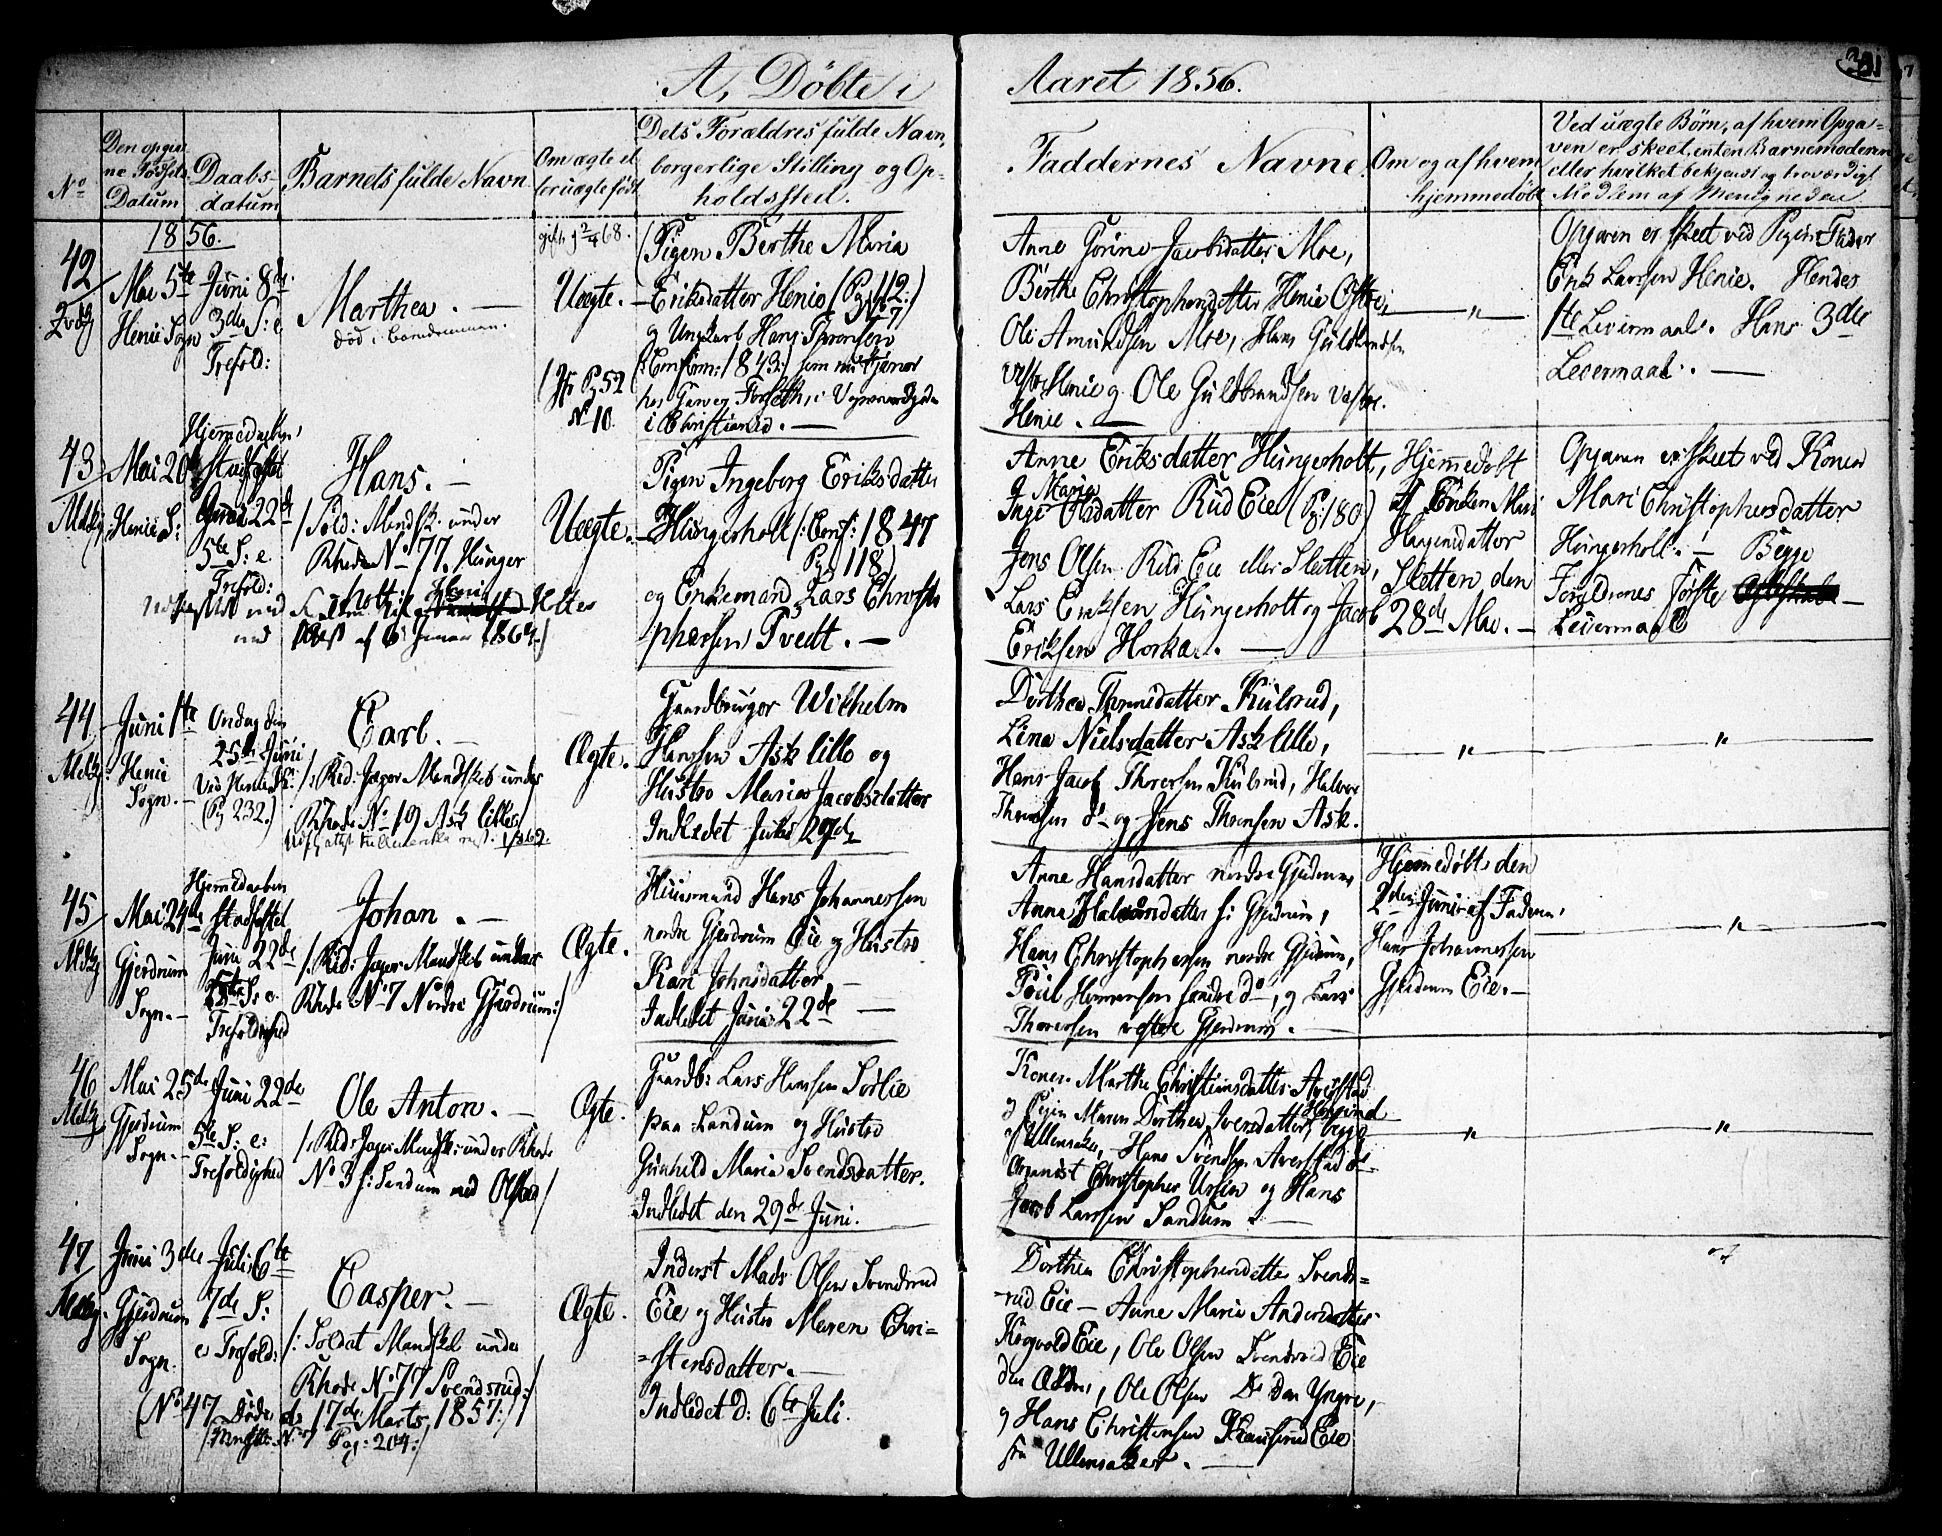 A, Döbte i Aaret 1856.
331
No
Den opgivne Fødsels Datum
Daabsdatum
Barnets fulde Navn
Om ægte el. før uægte født
Dets Forældres fulde Navn, borgerlige Stilling og Opholdssted.
Faddernes Navne.
Om og af hvem hjemmedøbt
Ved uægte Børn, af hvem Opgaven er skeet, enten Barnemoderen eller hvilket bekjendt og troværdigt Medlem af Menigheden
1856.
42
Pige
Mai 5te
Henie Sogn
Juni 8de
3die S: e
Trefold:
Marthea. —
død i barndommen.
gift 12/4 68.
Uægte. —
(Pigen Berthe Maria
Eriksdatter Henie (Pg 112:)
og Ungkarl Hans
(:Confirm: 1843:) som nu tjener
hos i
i Christiania. —
Pg 52
No 10.
Anne Jacobsdatter Moe,
Berthe Christophersdatter Henie Østre,
Ole Amundsen Moe, Hans Guldbrandsen
Vestre Henie og Ole Guldbrandsen Vestre
Henie. —
— " —
Opgaven er skeet ved Pigens Fader
Erik Larsen Henie. Hendes
1te Leiermaal. Hans 3die
Leiermaal. —
43
Mdkj
Mai 20
Henie S:
Hjemmedaaben
stadfæstet
Juni 22de
5te S: e.
Trefold:
Hans. —
/: Sold: Mandsk. under
Rhode No 77. Hunger
holt:
Attest af 6 Januar 1864:)
Uægte. —
Pigen Ingeborg Eriksdatter
Hungerholt (: Conf: 1847
Pg 118)
og Enkemand Lars Christo
phersen Tvedt. —
Anne Eriksdatter Hungerholt,
Inge Maria Olsdatter Rud Eie (Pg: 180)
Jens Olsen Rud Eie eller Sletten,
Lars Eriksen Hungerholt og Jacob
Eriksen Horka. —
Hjemmedøbt
af Enken Mari
Haagensdatter
Sletten den
28de Mai. —
Opgaven er skeet ved Konen
Mari Christophersdatter
Hungerholt. — Begge
Forældrenes Første
Leiermaal
44
Mdkj.
Juni 1te
Henie
Sogn. —
Onsdag den
25de Juni
Ved Henie K:
(Pg 232.)
Carl. —
/: Rid: Jæger Mandskab under
Rhode No 19 Ask lille:/
Ægte. —
Gaardbruger Wilhelm
Hansen Ask lille og
Hustro Maria Jacobsdatter
Indledet Juli 27de
Dorthea Thoresdatter Kulsrud,
Lina Nielsdatter Ask lille,
Hans Jacob Thoresen Kulsrud, Halvor
Thoresen do og Jens Thoresen Ask.
— " —
— " —
45
Mdkj
Mai 24de
Gjerdrum
Sogn. —
Hjemmedaaben
stadfæstet
Juni 22de
5te S: e.
Trefoldighed
Johan. —
/: Rid: Jæger Mandskab under
Rhode No 7 Nordre Gjerdrum:/
Ægte.
Huusmand Hans Johannessen
nordre Gjerdrum Eie og Hustro
Kari Johnsdatter —
Indledet Juni 22de —
Anne Hansdatter nordre Gjerdrum
Anna Halvorsdatter S: Gjerdrum,
Hans Christophersen nordre Gjerdrum,
Poul Hermansen søndre do, og Lars
Thoresen vestre Gjerdrum. —
Hjemmedøbt den
2den Juni af Faderen,
Hans Johannessen
Gjerdrum Eie. —
— " —
46
Mdkj
Mai 25de
Gjerdrum
Sogn. —
Juni 22de
5te S: e:
Trefoldighed
Ole Anton. —
/: Rid: Jæger Mandsk: under Rhode
No 3 S: Landum med
Ægte.
Gaardb: Lars Hansen Sørlie
paa Landum og Hustro
Gunhild Maria Svendsdatter.
Indledet den 29de Juni.
Konen Marthe Christiansdatter
og Pigen Maren Dorthea Iversdatter, begge
af Ullensaker, Hans Svendsen do
Organist Christopher Ursin og Hans
Jacob Larsen Landum. —
— " —
— " —
47
Mdkj.
Juni 3die
Gjerdrum
Sogn.
Juli 6te
7de S:
e Trefold:
Casper. —
/: Soldat Mandskab under
Rhode No 77 Svendsrud:/
(No 47 Døde d. 17de Marts 1857:/
Pag: 204:/
Ægte.
Inderst Mads Olsen Svendsrud
Eie og Hustro Maren Chri=
=stensdatter. —
Indledet d: 6te Juli.
Dorthea Christophersdatter Svends=
=rud Eie — Anne Maria Andersdatter
Kogvold Eie, Ole Olsen Svendsrud Eie
den Ældre, Ole Olsen Do den Yngre,
og Hans Christensen Eie
fra Ullensaker. —